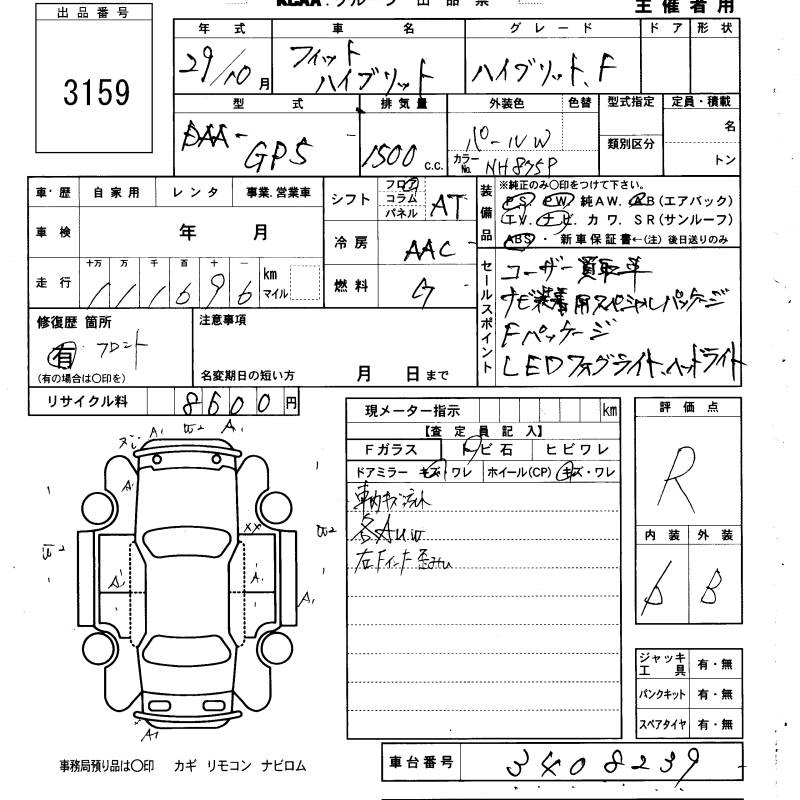 KCAA グループ 出品票
主催者用
出品番号
3159
年式 車名 グレード ドア 形状
29/10月 フィット ハイブリット ハイブリット、F
型式 排気量 外装色 色替 型式指定 定員・積載
DAA-GP5 1500 c.c. パールW カラーNo. NH875P 類別区分 名 トン
車・歴 自家用 レンタ 事業.営業車
車検 年 月
走行 十万 万 千 百 十 一 km マイル
111696
シフト フロア コラム パネル AT
冷房 AAC
燃料 ガ
装備品
※純正のみ〇印をつけて下さい。
PS PW 純AW. AB(エアバック)
TV. ナビ. カワ. SR(サンルーフ)
ABS ・ 新車保証書←(注) 後日送りのみ
セールスポイント
ユーザー買取車
ナビ装着用スペシャルパッケージ
Fパッケージ
LEDフォグライト、ヘッドライト
修復歴 箇所
有 フロント
(有の場合は〇印を)
注意事項
名変期日の短い方 月 日まで
リサイクル料 8600円
現メーター指示 km
【査定員記入】
Fガラス トビ石 ヒビワレ
ドアミラー キズ・ワレ ホイール(CP) キズ・ワレ
車内キズ
各AUW
評価点
R
内装 外装
B
ジャッキ工具 有・無
パンクキット 有・無
スペアタイヤ 有・無
A1 W2 A1
A1
XX
W2 W2
A1 A1 A1
A1
事務局預り品は〇印 カギ リモコン ナビロム
車台番号 3408239